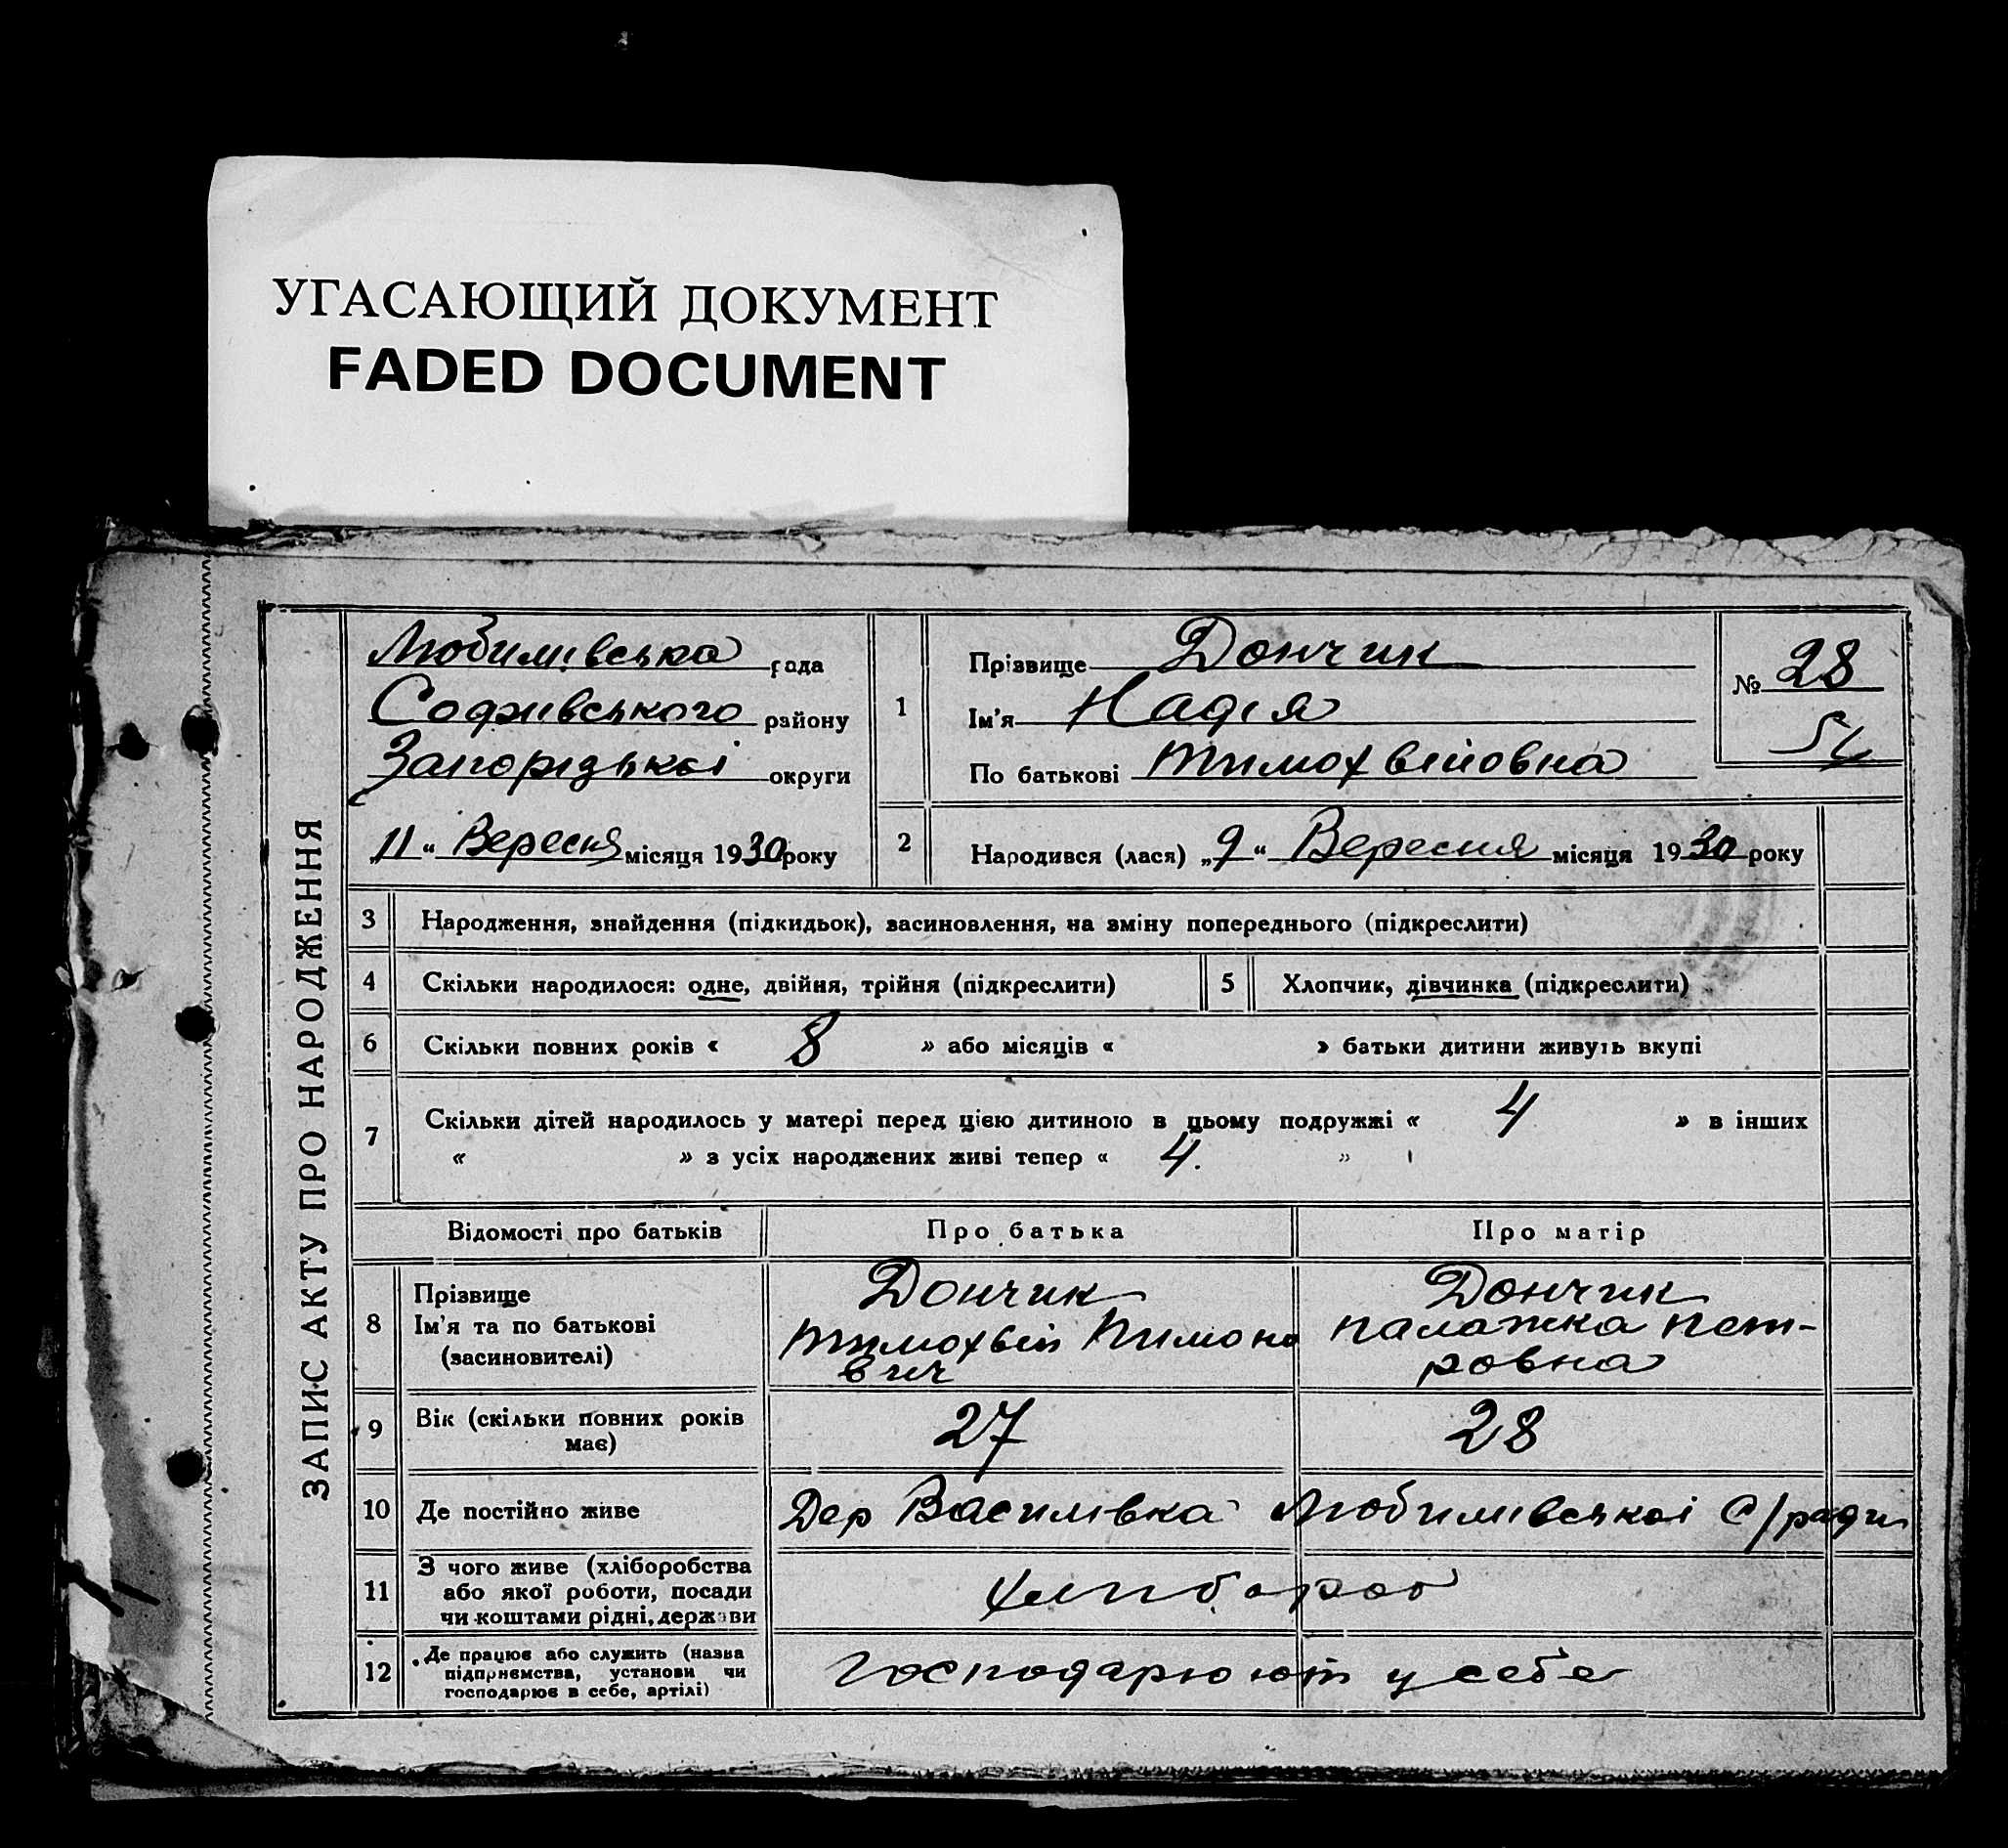 УГАСАЮЩИЙ ДОКУМЕНТ
FADED DOCUMENT
ЗАПИС АКТУ ПРО НАРОДЖЕННЯ
Любимівська рада
Софіївського району
Запорізької округи
„11“ Вересня місяця 1930 року
1
Прізвище Дончик
Ім'я Надія
По батькові Тимохвійовна
№ 28
54
2
Народився (лася) „9“ Вересня місяця 1930 року
3 Народження, знайдення (підкидьок), засиновлення, на зміну попереднього (підкреслити)
4 Скільки народилося: одне, двійня, трійня (підкреслити)
5 Хлопчик, дівчинка (підкреслити)
6 Скільки повних років « 8 » або місяців « » батьки дитини живуть вкупі
7 Скільки дітей народилось у матері перед цією дитиною в цьому подружжі « 4 » в інших
« » з усіх народжених живі тепер « 4. »
Відомості про батьків Про батька Про матір
8 Прізвище
Ім'я та по батькові
(засиновителі)
Дончик
Тимохвій Пимоно
вич
Дончик
Палажка Пет-
ровна
9 Вік (скільки повних років
має)
27 28
10 Де постійно живе Дер Василівка Любимівської С/ради
11 З чого живе (хліборобства
або якої роботи, посади
чи коштами рідні, держави
хлібороб
12 Де працює або служить (назва
підприємства, установи чи
господарює в себе, артілі)
Господарюють у себе